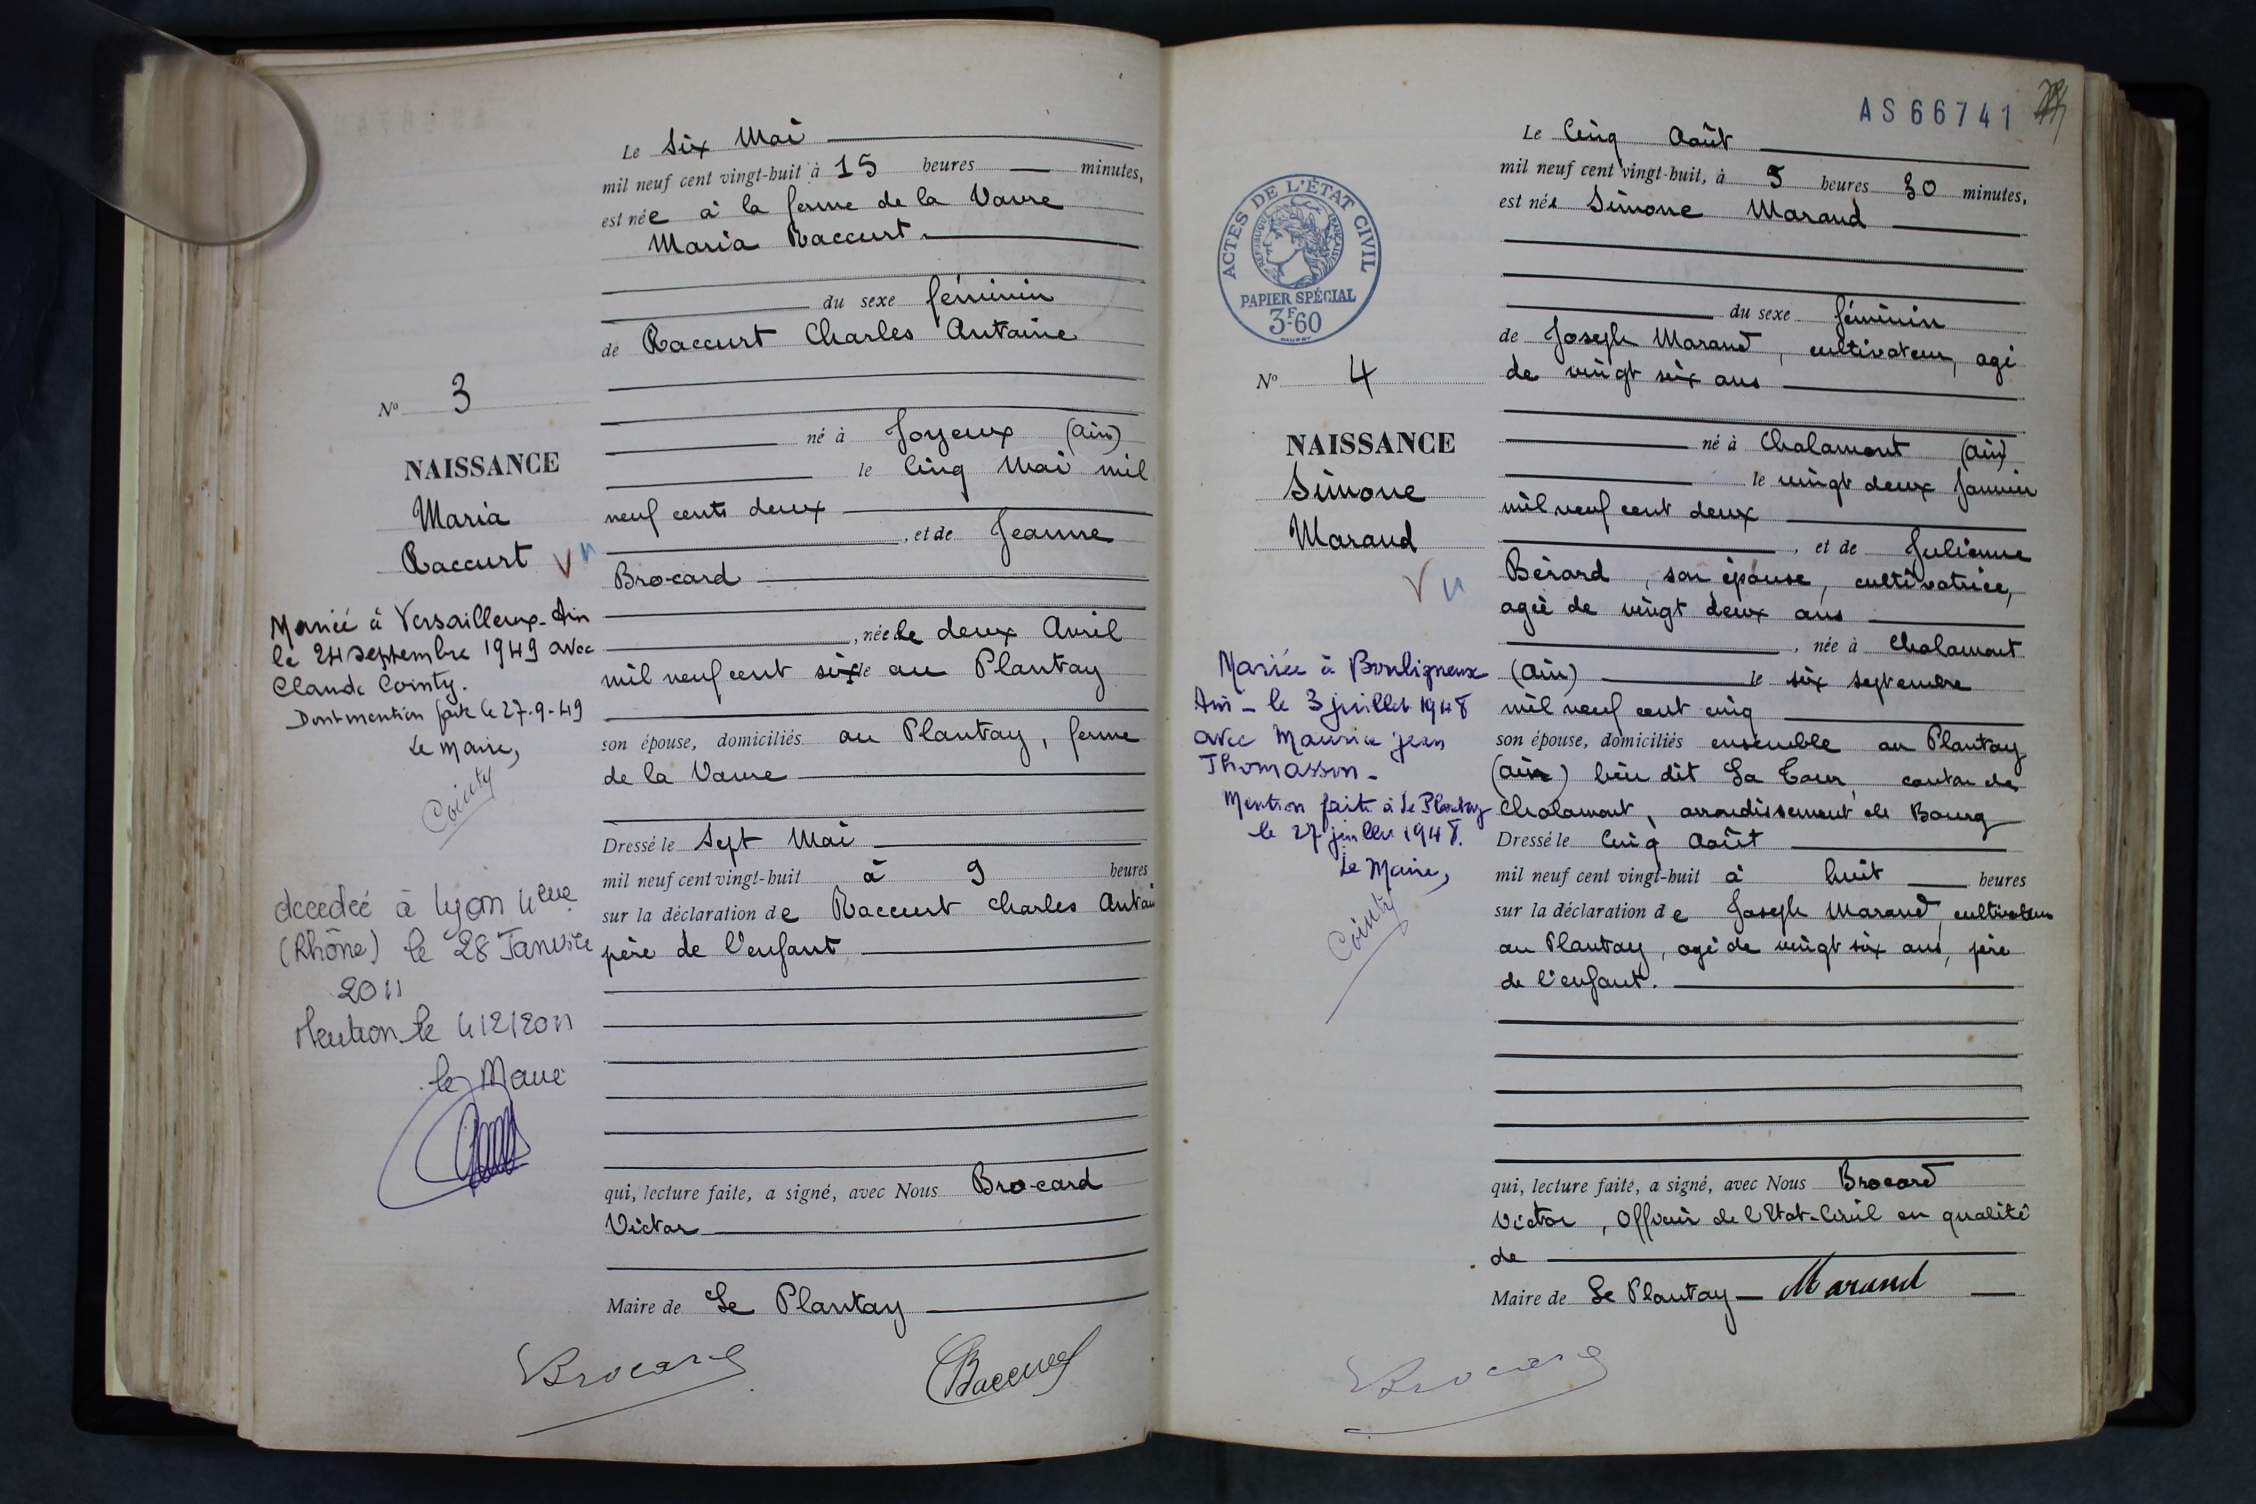 Le Six Mai
mil neuf cent vingt-huit à 15 heures minutes,
est née à la ferme de la Vavre
Maria Raccurt.
du sexe féminin
de Raccurt Charles Antoine
né à Joyeux (Ain)
le Cinq Mai mil
neuf cents deux
, et de Jeanne
Brocard
, née le deux Avril
mil neuf cent six le au Plantay
son épouse, domiciliés au Plantay, ferme
de la Vavre
Dressé le Sept Mai
mil neuf cent vingt-huit à 9 heures
sur la déclaration de Raccurt Charles Antoine
père de l'enfant
qui, lecture faite, a signé, avec Nous Brocard
Victor
Maire de Le Plantay
Brocard
Raccurt
No 3
NAISSANCE
Maria
Raccurt
Mariée à Versailleux-Ain
le 24 septembre 1949 avec
Claude Cointy.
Dont mention faite le 27-9-49
Le Maire,
Cointy
décédée à Lyon 4ème
(Rhône) le 28 Janvier
2011
Mention le 4/2/2011
le Maire
AS66741
Le Cinq Août
mil neuf cent vingt-huit, à 5 heures 30 minutes,
est née Simone Marand
du sexe féminin
de Joseph Marand, cultivateur, agé
de vingt six ans
né à Chalamont (Ain)
le vingt deux Janvier
mil neuf cent deux
, et de Julienne
Bérard, son épouse, cultivatrice,
agée de vingt deux ans
, née à Chalamont
(Ain) le six septembre
mil neuf cent cinq
son épouse, domiciliés ensemble au Plantay
(Ain) lieu dit La Tour, canton de
Chalamont, arrondissement de Bourg
Dressé le Cinq Août
mil neuf cent vingt-huit à huit heures
sur la déclaration de Joseph Marand, cultivateur
au Plantay, agé de vingt six ans, père
de l'enfant.
qui, lecture faite, a signé, avec Nous Brocard
Victor, Officier de l'Etat-Civil en qualité
de
Maire de Le Plantay Marand
Brocard
ACTES DE L'ÉTAT CIVIL
RÉPUBLIQUE FRANÇAISE
PAPIER SPÉCIAL
3F60
No 4
NAISSANCE
Simone
Marand
Mariée à Bouligneux
Ain - le 3 juillet 1948
avec Maurice Jean
Thomasson -
Mention fait à Le Plantay
le 27 juillet 1948.
Le Maire,
Cointy